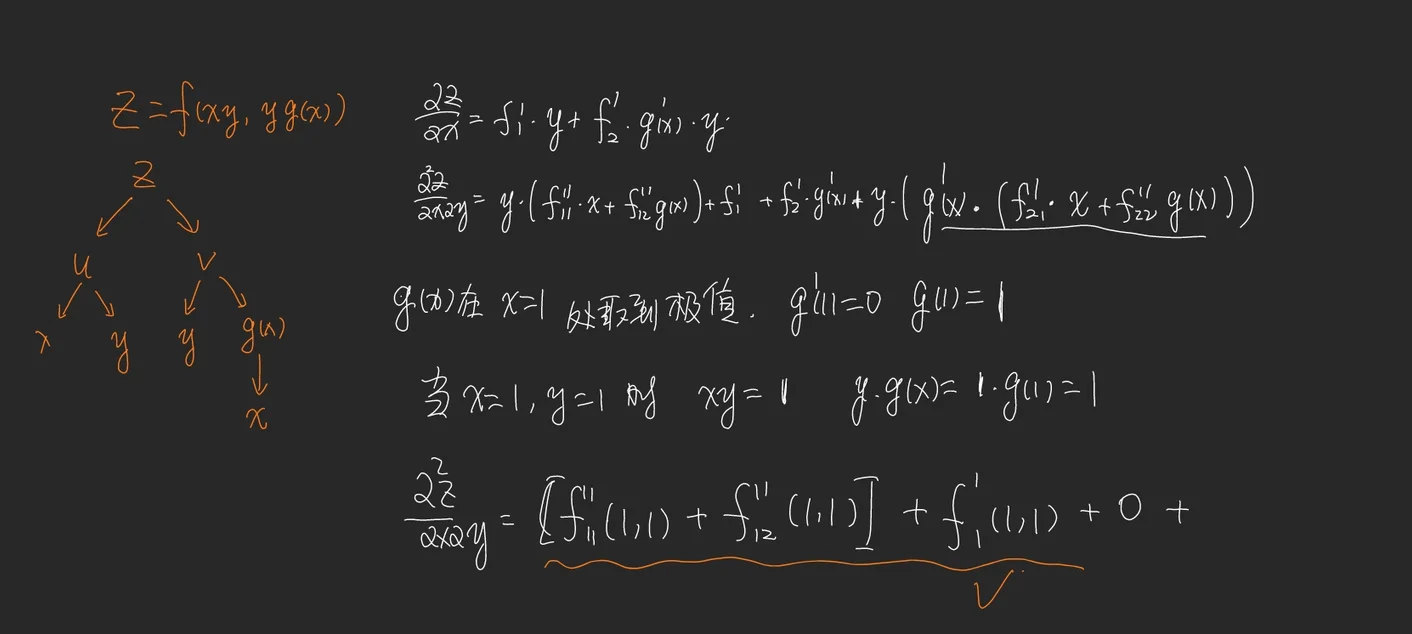 Z=f(xy, yg(x))
Z
u v
x y y g(x)
x
∂z/∂x = f₁′·y + f₂′·g′(x)·y·
∂²z/∂x∂y = y·(f₁₁″·x + f₁₂″g(x)) + f₁′ + f₂′·g′(x) + y·(g′(x)·(f₂₁″·x + f₂₂″g(x)))
g(x)在 x=1 处取到极值. g′(1)=0 g(1)=1
当 x=1, y=1 时 xy=1 y·g(x)=1·g(1)=1
∂²z/∂x∂y = [f₁₁″(1,1) + f₁₂″(1,1)] + f₁′(1,1) + 0 +